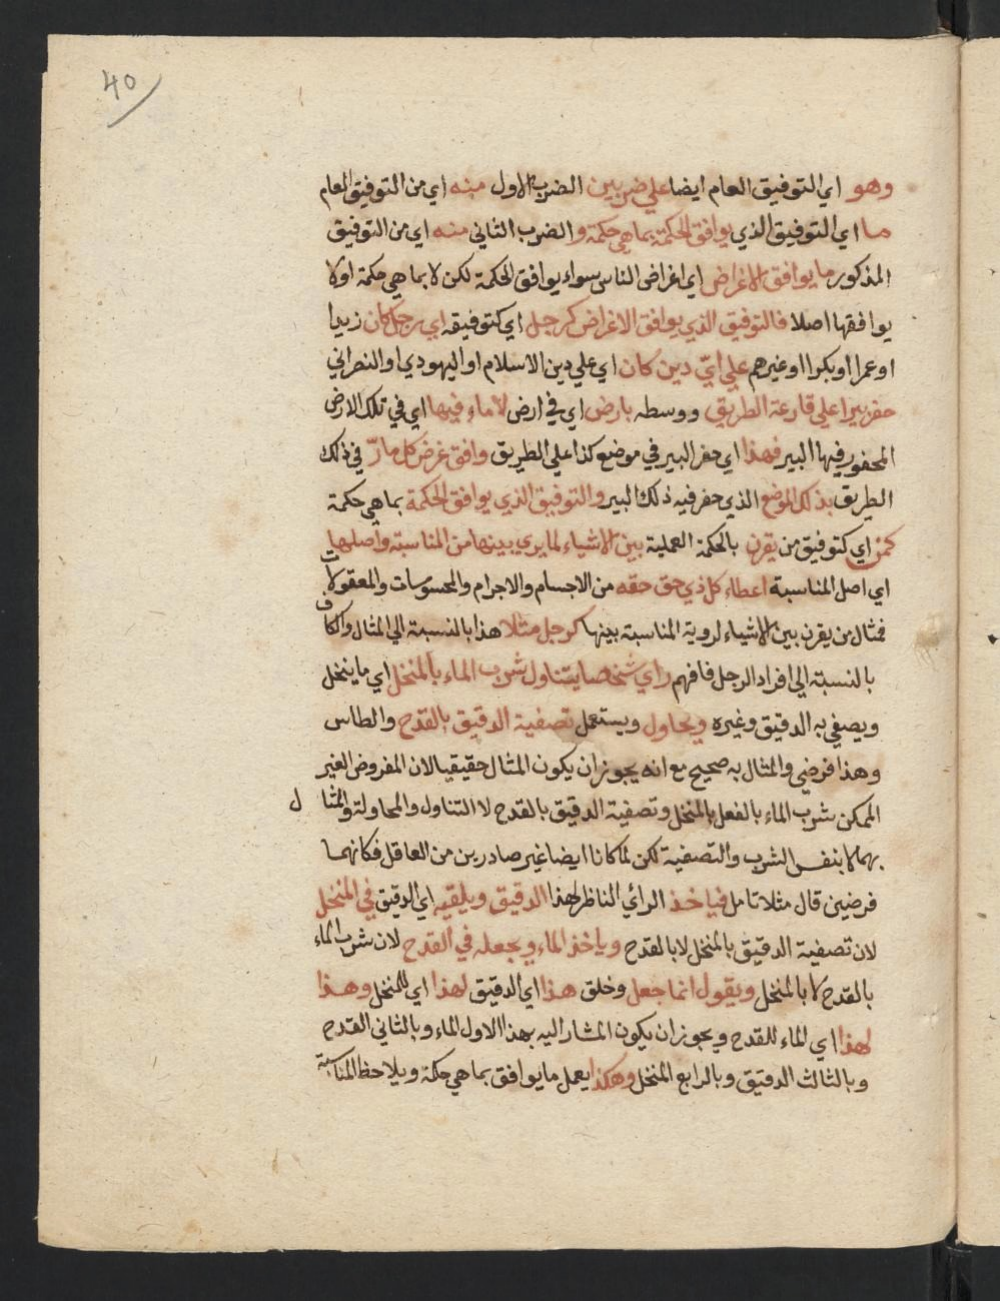 40
وهو اي التوفيق العام ايضا علي ضربين الضرب الاول منه اي من التوفيق العام
ما اي التوفيق الذي يوافق الحكمة بما هي حكمة والضرب الثاني منه اي من التوفيق
المذكور ما يوافق الاغراض اي اغراض الناس سواء يوافق الحكمة لكن لا بما هي حكمة اولا
يوافقها اصلا فالتوفيق الذي يوافق الاغراض كرجل اي كتوفيقه اي رجل كان زيدا
او عمرا او بكرا او غيرهم علي ايّ دين كان اي علي دين الاسلام او اليهودي او النصراني
حفر بيرا علي قارعة الطريق ووسطه بارض اي في ارض لا ماء فيها اي في تلك الارض
المحفور فيها البير فهذا اي حفر البير في موضع كذا علي الطريق وافق غرض كل مارّ في ذلك
الطريق بذلك الموضع الذي حفر فيه ذلك البير والتوفيق الذي يوافق الحكمة بما هي حكمة
كمن اي كتوفيق من يقرن بالحكمة العملية بين الاشياء لما يري بينها من المناسبة واصلها
اي اصل المناسبة اعطاء كل ذي حق حقه من الاجسام والاجرام والمحسوسات والمعقولات
فمثال من يقرن بين الاشياء لروية المناسبة بينها كرجل مثلا هذا بالنسبة الي المثال والكاف
بالنسبة الي افراد الرجل فافهم راي شخصا يتناول شرب الماء بالمنخل اي ما ينخل
ويصفي به الدقيق وغيره ويحاول ويستعمل تصفية الدقيق بالقدح والطاس
وهذا فرضي والمثال به صحيح مع انه يجوز ان يكون المثال حقيقيا لان المفروض الغير
الممكن شرب الماء بالفعل بالمنخل وتصفية الدقيق بالقدح لا التناول والمحاولة والمثال
بهما لا بنفس الشرب والتصفية لكن لما كانا ايضا غير صادرين من العاقل فكانهما
فرضين قال مثلا تامل فياخذ الرائي الناظر لهذا الدقيق ويلقيه اي الدقيق في المنخل
لان تصفية الدقيق بالمنخل لا بالقدح وياخذ الماء ويجعله في القدح لان شرب الماء
بالقدح لا بالمنخل ويقول انما جعل وخلق هذا اي الدقيق لهذا اي للمنخل وهذا
لهذا اي الماء للقدح ويجوز ان يكون المشار اليه بهذا الاول الماء وبالثاني القدح
وبالثالث الدقيق وبالرابع المنخل وهكذا يعمل ما يوافق بما هي حكمة ويلاحظ المناسبة